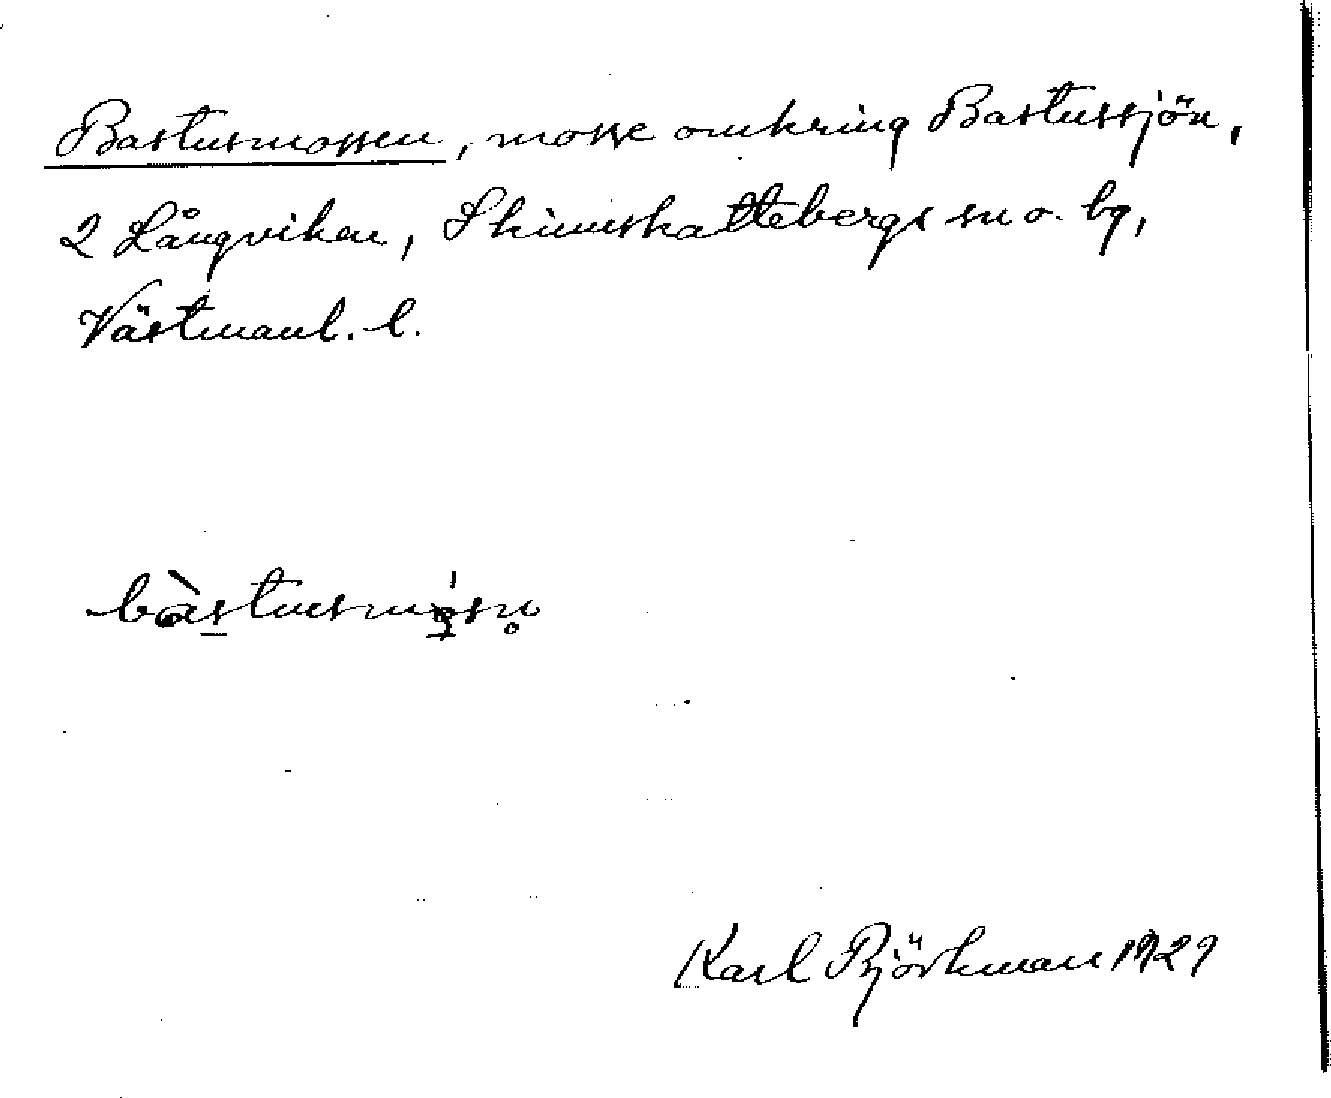 Bastusmossen, mosse omkring Bastussjön,
2 Långviken, Skinnskattebergs sn o. bg,
Västmanl. l.
bàstusmósn̥
Karl Björkman 1929